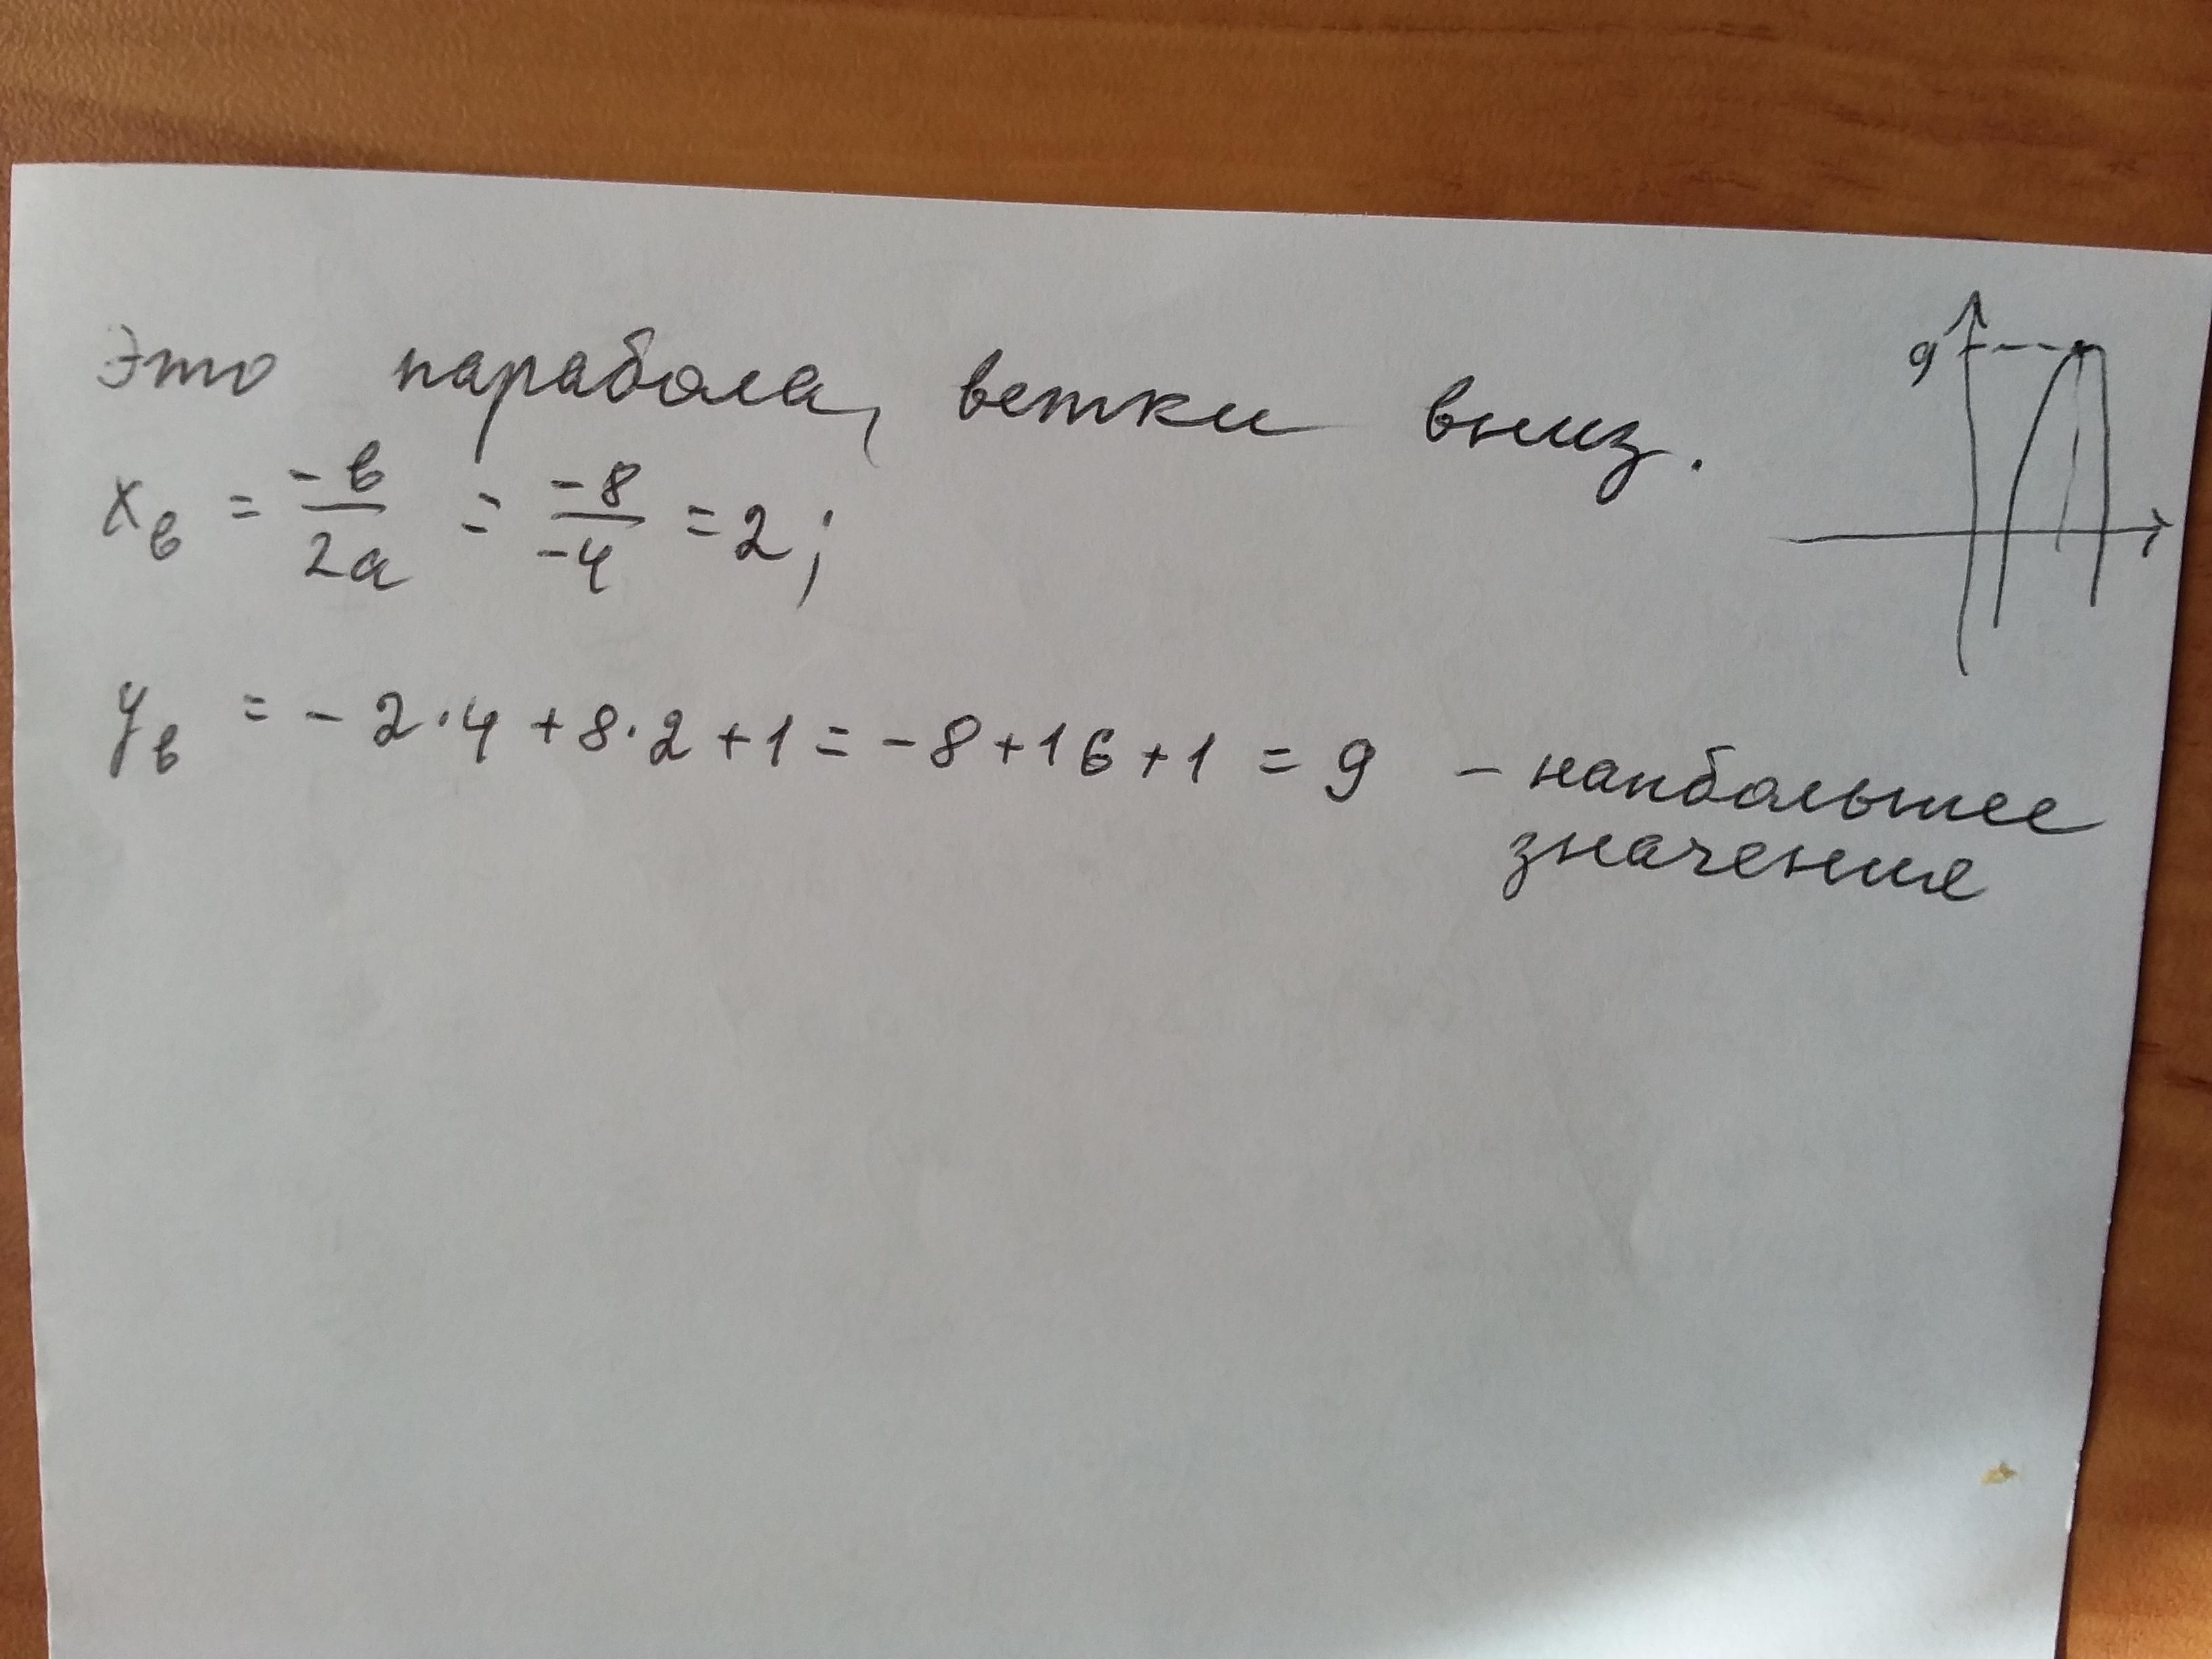 Это парабола, ветки вниз.
xв = -в/2a = -8/-4 = 2;
yв = -2·4+8·2+1 = -8+16+1 = 9 – наибольшее
значение
9